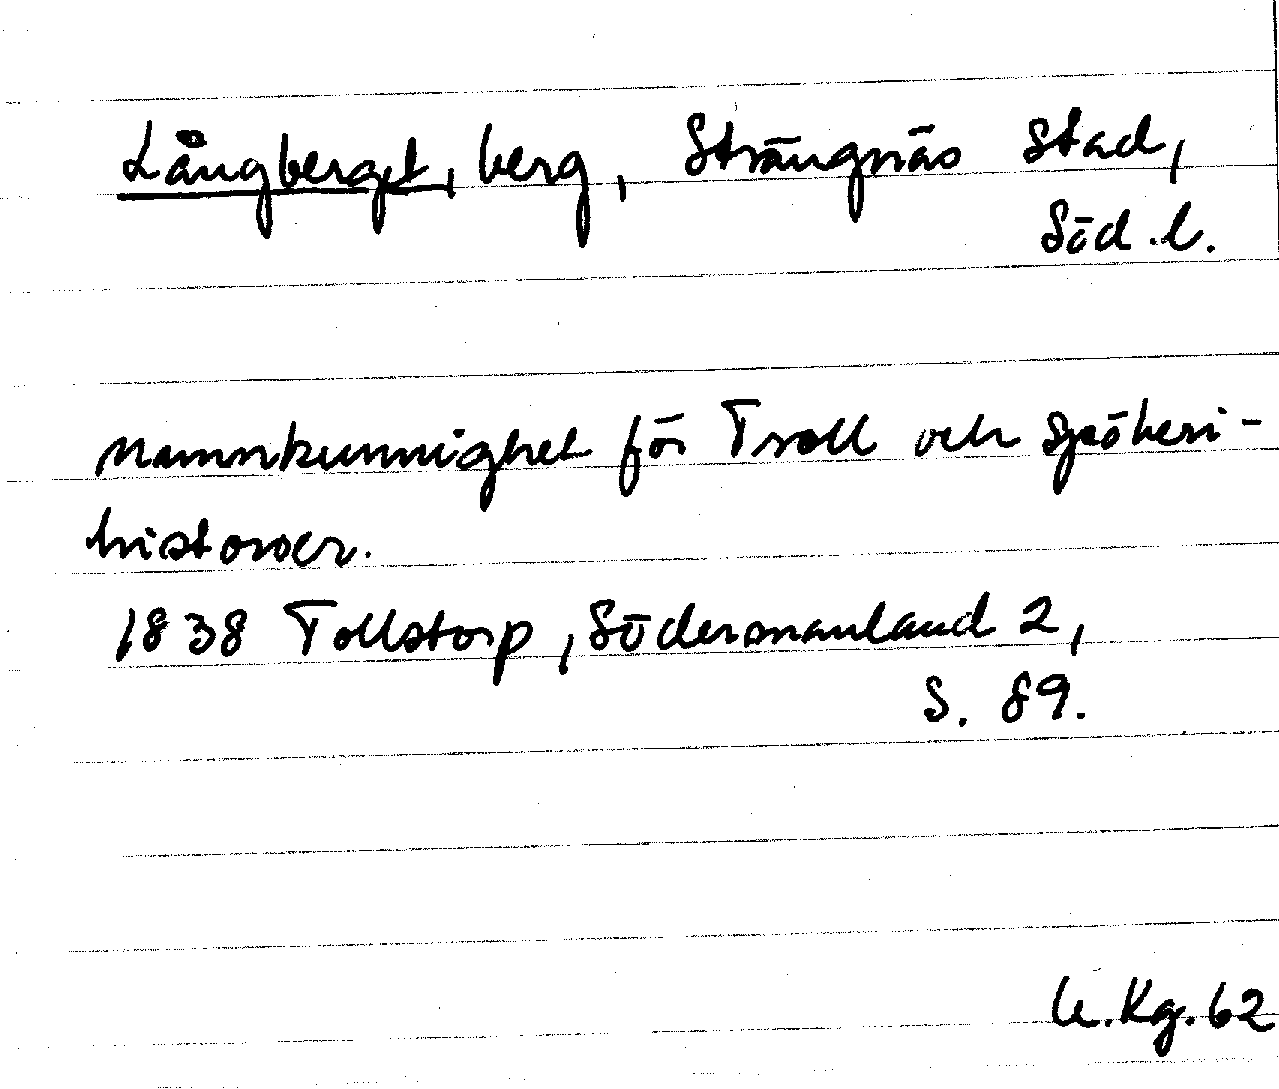 Långberget, berg, Strängnäs stad,
Söd.l.
Namnkunnighet för Troll och Spökeri-
historier.
1838 Tollstorp, Södermanland 2,
S. 89.
U.Kg.62